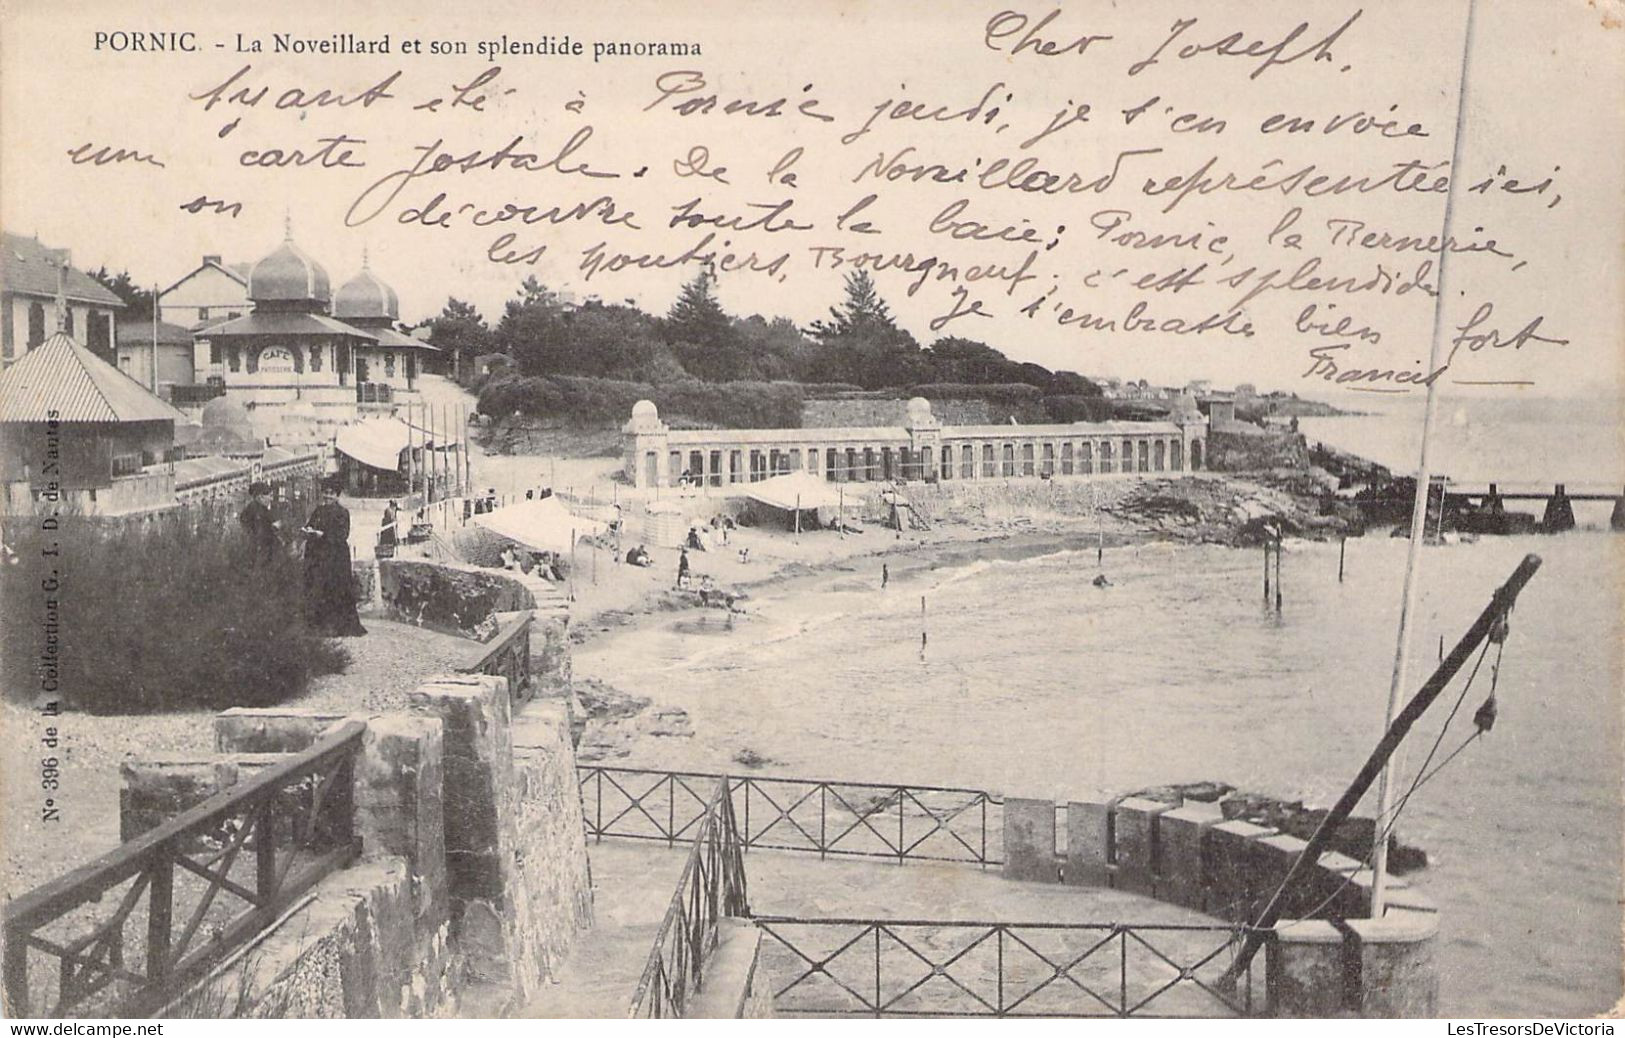 PORNIC. - La Noveillard et son splendide panorama
Cher Joseph,
Ayant été à Pornic jeudi, je t'en envoie
une carte postale. De la Noveillard représentée ici,
on découvre toute la baie; Pornic, la Bernerie,
les Moutiers, Bourgneuf; c'est splendide.
Je t'embrasse bien fort
Francis
CAFÉ
PATISSERIE
Nº 396 de la Collection G. I. D. de Nantes
delcampe.net
LesTresorsDeVictoria